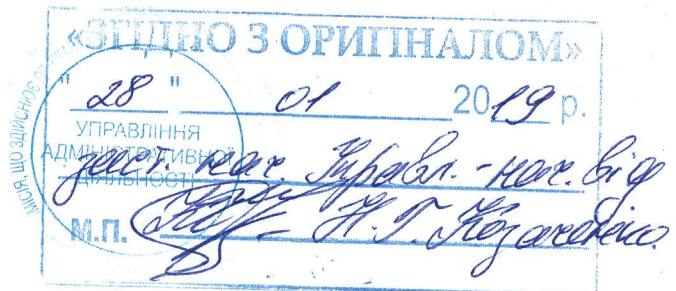 «ЗГІДНО З ОРИГІНАЛОМ»
"28" 01 2019 р.
УПРАВЛІННЯ
АДМІНІСТРАТИВНОЇ
ДІЯЛЬНОСТІ
заст. нач. Управл.-нач. від
М.П. Н. Г. Козаченко